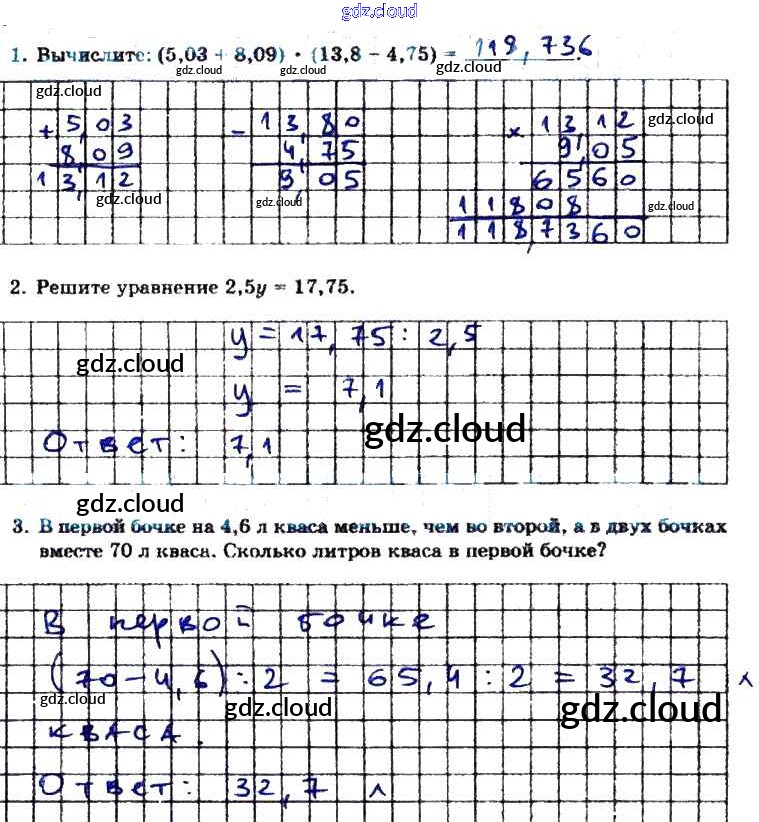 gdz.cloud
1. Вычислите: (5,03 + 8,09) · (13,8 − 4,75) = 118,736.
gdz.cloud gdz.cloud gdz.cloud
gdz.cloud
+ 5,03 − 13,80 × 13,12 gdz.cloud
8,09 4,75 9,05
13,12 9,05 6560
gdz.cloud gdz.cloud 11808 gdz.cloud
118,7360
2. Решите уравнение 2,5y = 17,75.
y = 17,75 : 2,5
gdz.cloud
y = 7,1
Ответ: 7,1 gdz.cloud
gdz.cloud
3. В первой бочке на 4,6 л кваса меньше, чем во второй, а в двух бочках
вместе 70 л кваса. Сколько литров кваса в первой бочке?
В первой бочке
(70−4,6):2 = 65,4:2 = 32,7 л
gdz.cloud gdz.cloud gdz.cloud
кваса.
Ответ: 32,7 л